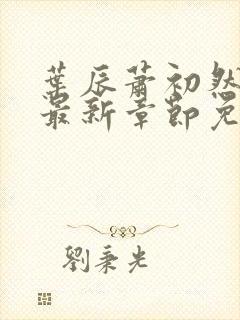 葉辰蕭初然
最新章節免
劉秉光